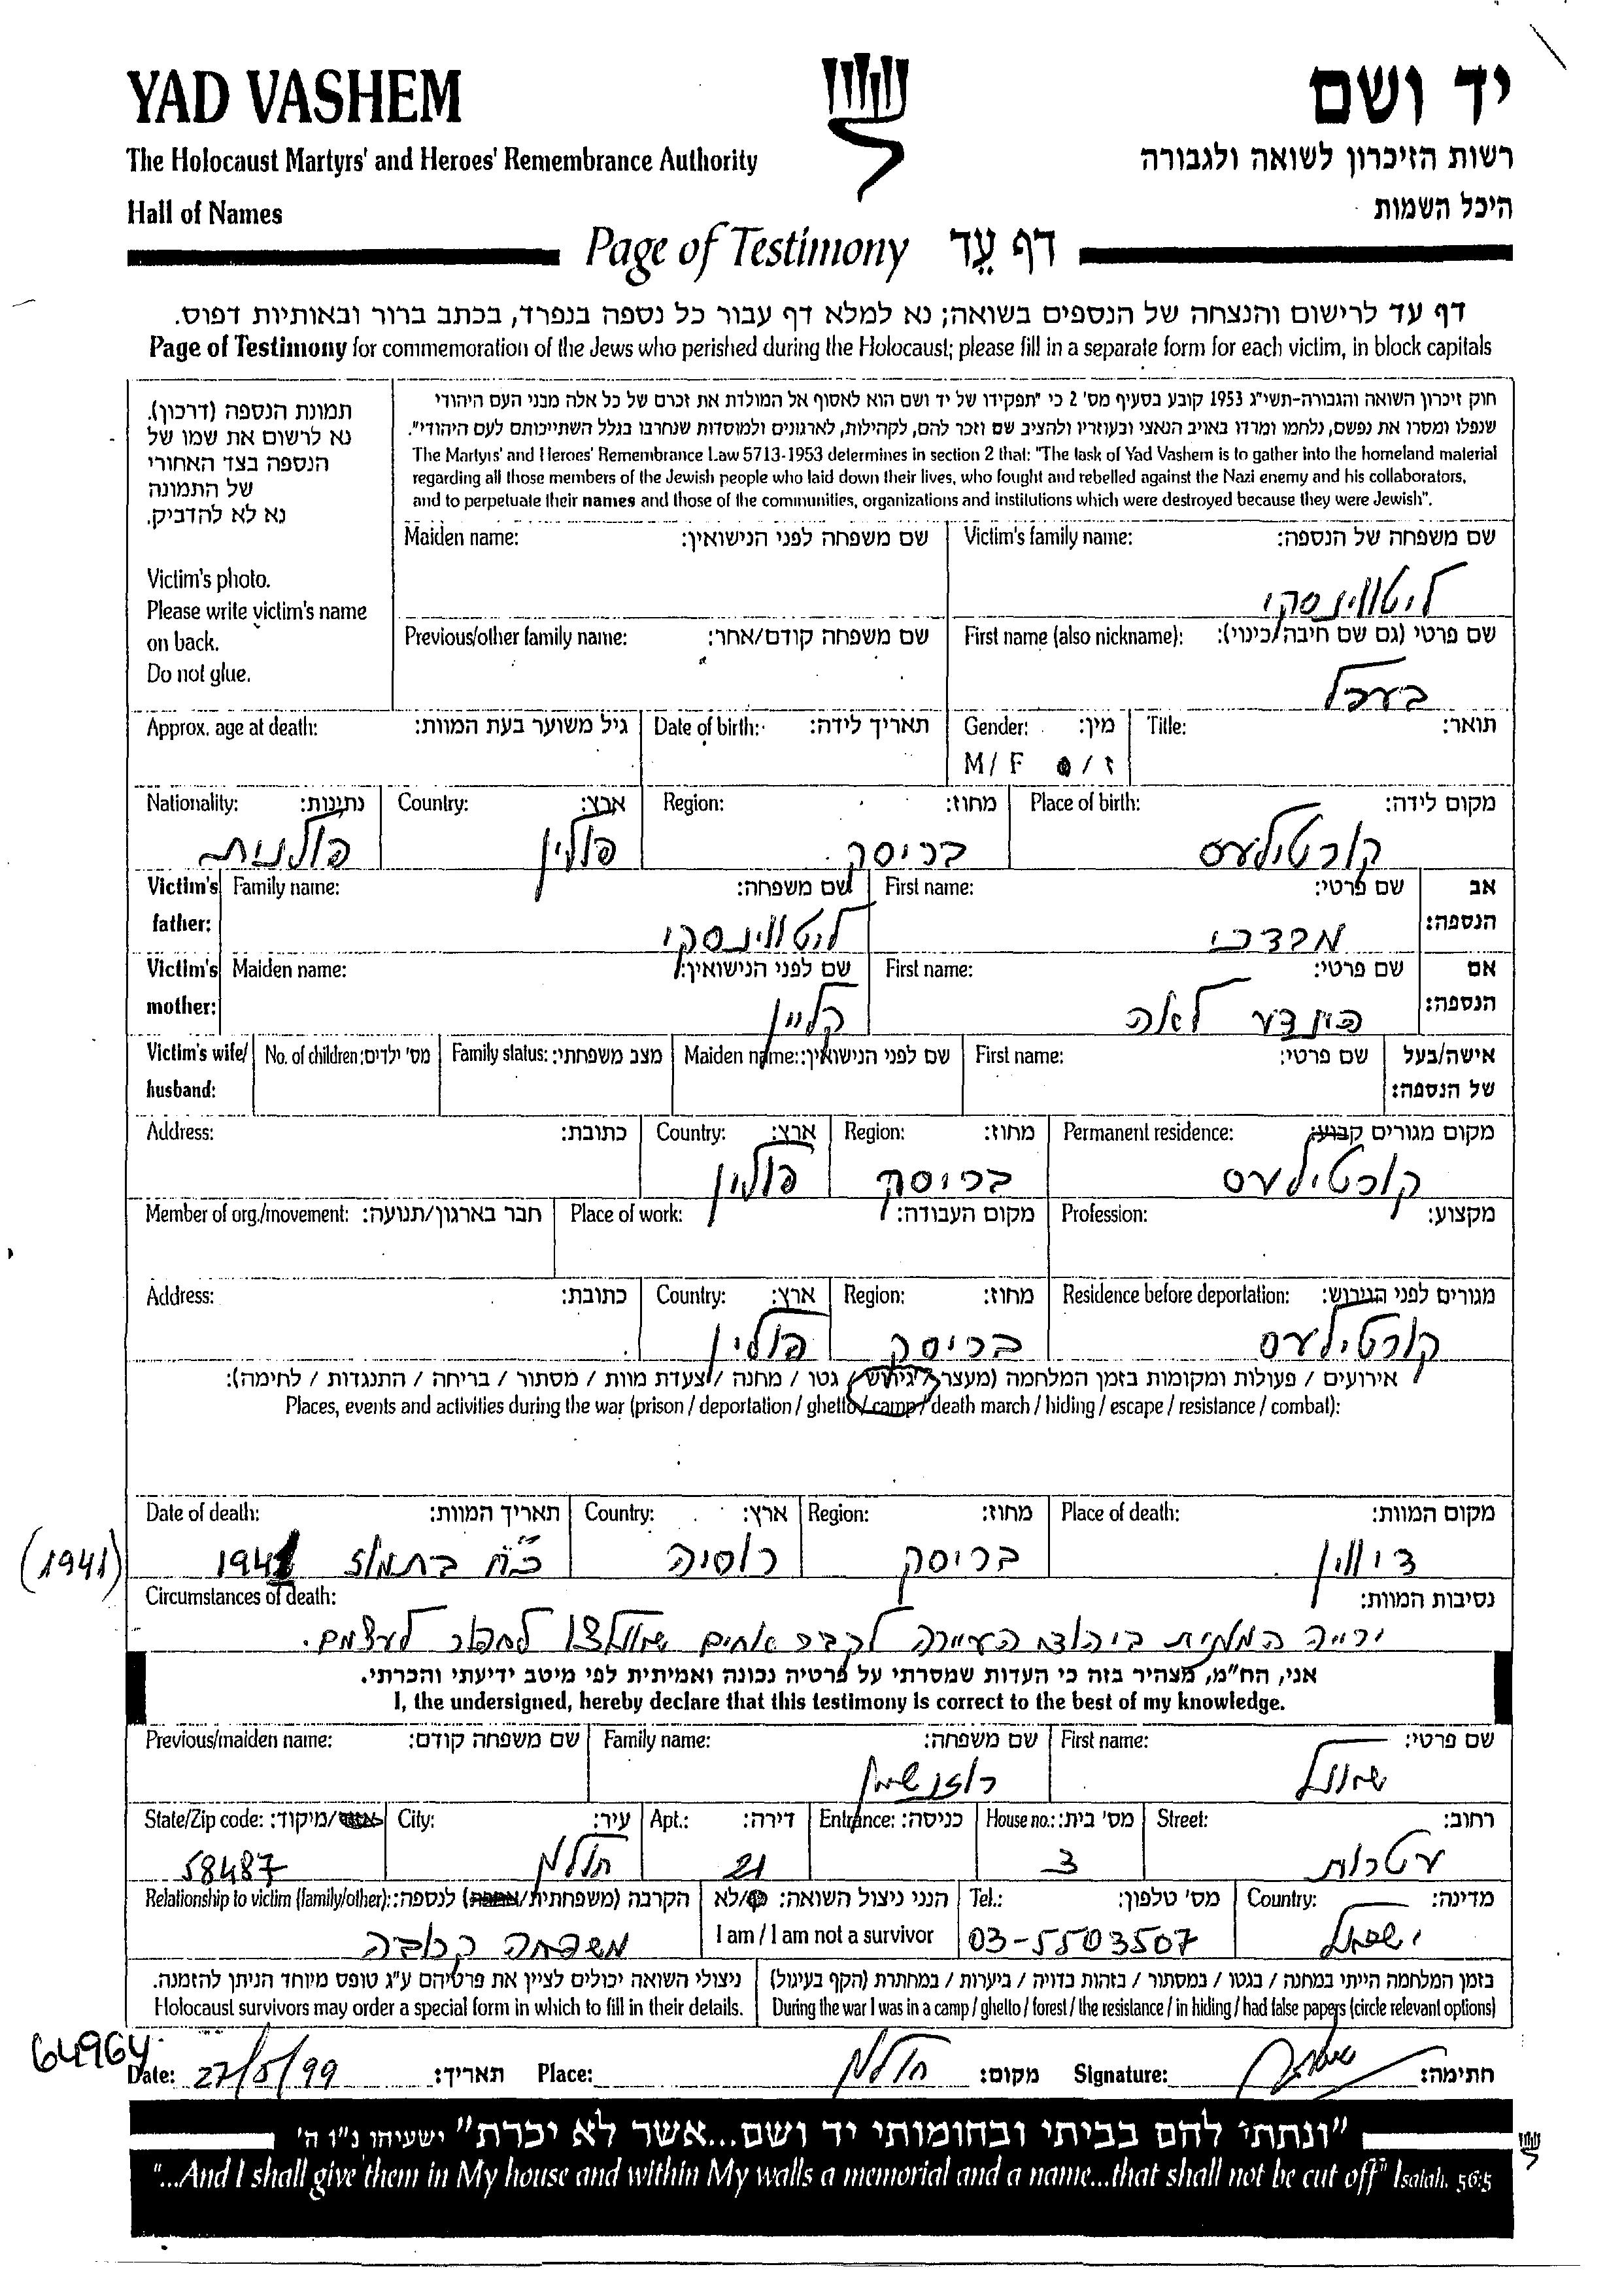 YAD VASHEM
יד ושם
The Holocaust Martyrs' and Heroes' Remembrance Authority
רשות הזיכרון לשואה ולגבורה
Hall of Names
היכל השמות
Page of Testimony דף עֵד
דף עד לרישום והנצחה של הנספים בשואה; נא למלא דף עבור כל נספה בנפרד, בכתב ברור ובאותיות דפוס.
Page of Testimony for commemoration of the Jews who perished during the Holocaust; please fill in a separate form for each victim, in block capitals
תמונת הנספה (דרכון).
נא לרשום את שמו של
הנספה בצד האחורי
של התמונה
נא לא להדביק.
Victim's photo.
Please write victim's name
on back.
Do not glue.
חוק זיכרון השואה והגבורה-תשי"ג 1953 קובע בסעיף מס' 2 כי "תפקידו של יד ושם הוא לאסוף אל המולדת את זכרם של כל אלה מבני העם היהודי
שנפלו ומסרו את נפשם, נלחמו ומרדו באויב הנאצי ובעוזריו ולהציב שם וזכר להם, לקהילות, לארגונים ולמוסדות שנחרבו בגלל השתייכותם לעם היהודי".
The Martyrs' and Heroes' Remembrance Law 5713-1953 determines in section 2 that: "The task of Yad Vashem is to gather into the homeland material
regarding all those members of the Jewish people who laid down their lives, who fought and rebelled against the Nazi enemy and his collaborators,
and to perpetuate their names and those of the communities, organizations and institutions which were destroyed because they were Jewish".
Maiden name: שם משפחה לפני הנישואין: Victim's family name: שם משפחה של הנספה:
ליטווינסקי
Previous/other family name: שם משפחה קודם/אחר: First name (also nickname): שם פרטי (גם שם חיבה/כינוי):
בערל
Approx. age at death: גיל משוער בעת המוות: Date of birth: תאריך לידה: Gender: מין: Title: תואר:
M / F ז /
Nationality: נתינות: Country: ארץ: Region: מחוז: Place of birth: מקום לידה:
פולנית פולין בריסק קורטילעס
Victim's father: Family name: שם משפחה: First name: שם פרטי: אב הנספה:
ליטווינסקי מרדכי
Victim's mother: Maiden name: שם לפני הנישואין: First name: שם פרטי: אם הנספה:
קליין לאה
Victim's wife/ husband: No. of children: מס' ילדים: Family status: מצב משפחתי: Maiden name: שם לפני הנישואין: First name: שם פרטי: אישה/בעל של הנספה:
Address: כתובת: Country: ארץ: Region: מחוז: Permanent residence: מקום מגורים קבוע:
פולין בריסק קורטילעס
Member of org./movement: חבר בארגון/תנועה: Place of work: מקום העבודה: Profession: מקצוע:
Address: כתובת: Country: ארץ: Region: מחוז: Residence before deportation: מגורים לפני הגירוש:
פולין בריסק קורטילעס
אירועים / פעולות ומקומות בזמן המלחמה (מעצר / גירוש / גטו / מחנה / צעדת מוות / מסתור / בריחה / התנגדות / לחימה):
Places, events and activities during the war (prison / deportation / ghetto / camp / death march / hiding / escape / resistance / combat):
Date of death: תאריך המוות: Country: ארץ: Region: מחוז: Place of death: מקום המוות:
(1941) כ"ח בתמוז 1941 רוסיה בריסק דיווין
Circumstances of death: נסיבות המוות:
ירייה המונית ביהודי העיירה לקבר אחים שאולצו לחפור לעצמם.
אני, הח"מ, מצהיר בזה כי העדות שמסרתי על פרטיה נכונה ואמיתית לפי מיטב ידיעתי והכרתי.
I, the undersigned, hereby declare that this testimony is correct to the best of my knowledge.
Previous/maiden name: שם משפחה קודם: Family name: שם משפחה: First name: שם פרטי:
רוזנשיין שמואל
State/Zip code: /מיקוד: City: עיר: Apt.: דירה: Entrance: כניסה: House no.: מס' בית: Street: רחוב:
58487 חולון 21 3 עטרות
Relationship to victim (family/other): הקרבה (משפחתית/אחרת) לנספה: הנני ניצול השואה: /לא Tel.: מס' טלפון: Country: מדינה:
משפחה קרובה I am / I am not a survivor 03-5503507 ישראל
ניצולי השואה יכולים לציין את פרטיהם ע"ג טופס מיוחד הניתן להזמנה. בזמן המלחמה הייתי במחנה / בגטו / במסתור / בזהות בדויה / ביערות / במחתרת (הקף בעיגול)
Holocaust survivors may order a special form in which to fill in their details. During the war I was in a camp / ghetto / forest / the resistance / in hiding / had false papers (circle relevant options)
64964
Date: 27/5/99 תאריך: Place: חולון מקום: Signature: חתימה:
"ונתתי להם בביתי ובחומותי יד ושם...אשר לא יכרת" ישעיהו נ"ו ה'
"...And I shall give them in My house and within My walls a memorial and a name...that shall not be cut off" Isaiah, 56:5